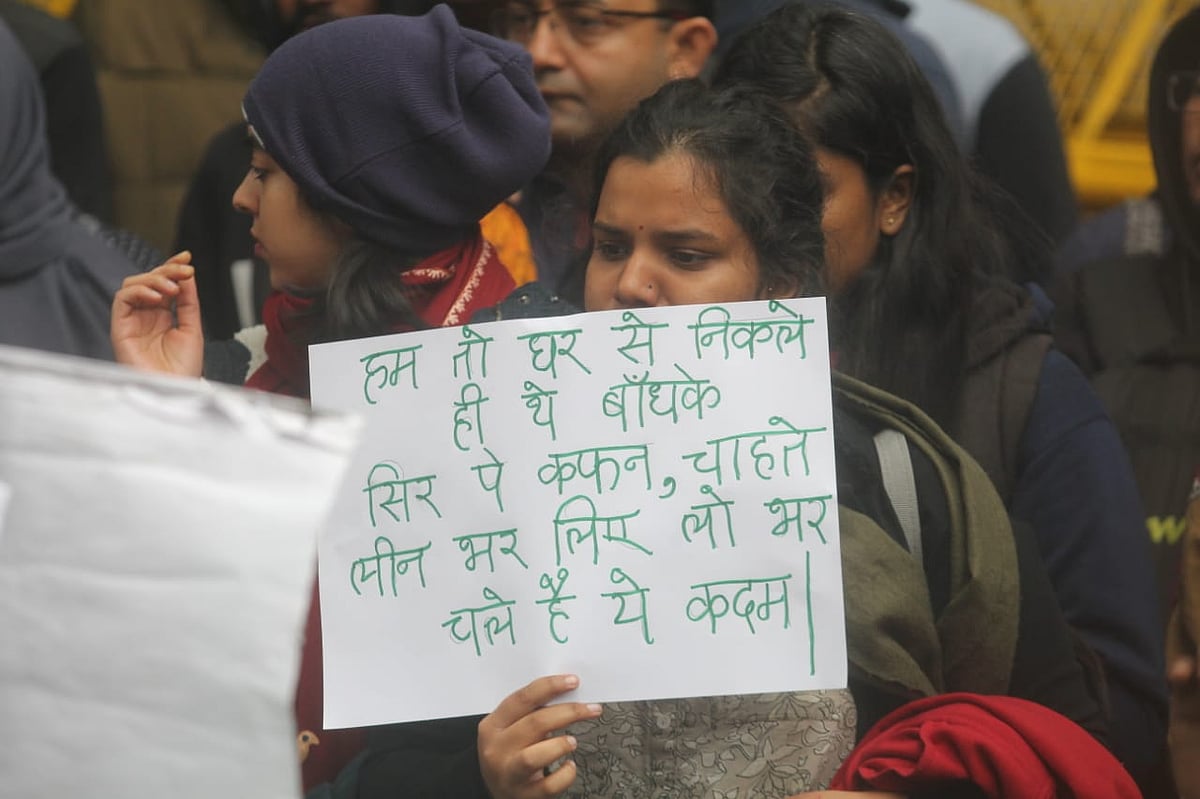 हम तो घर से निकले
ही थे बाँधके
सिर पे कफन, चाहते
लीन भर लिए लो भर
चले हैं ये कदम।